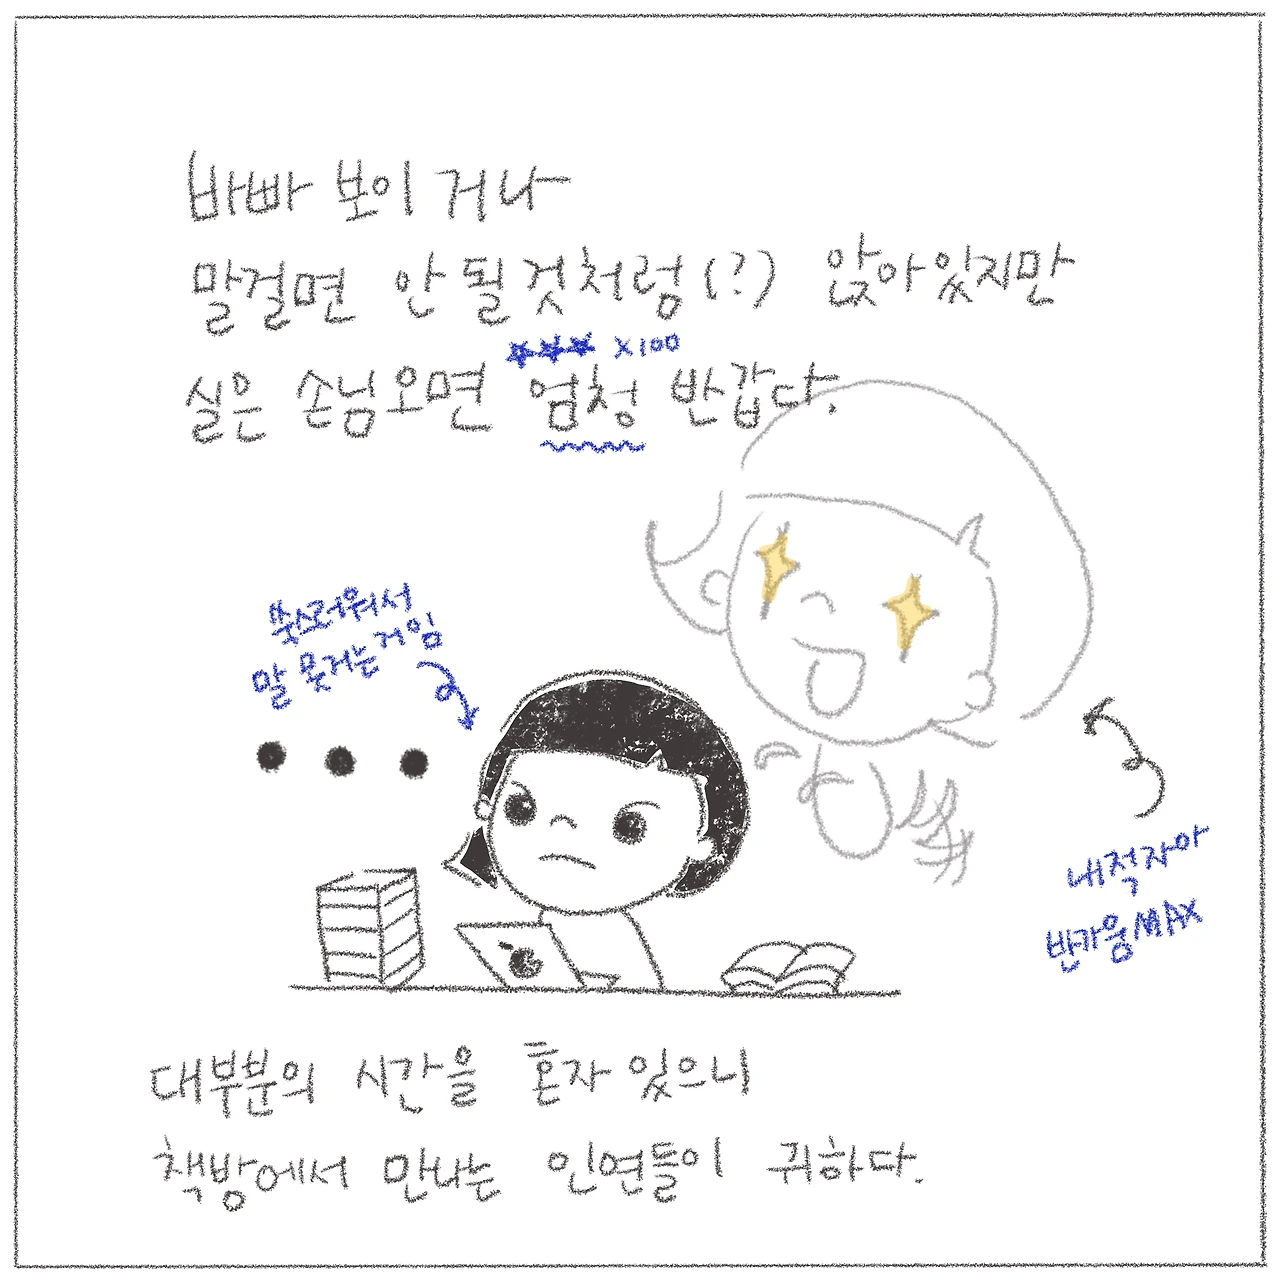 바빠 보이거나
말걸면 안 될것처럼(?) 앉아있지만
★★★ x100
실은 손님오면 엄청 반갑다.
쑥스러워서
말 못거는거임
내적자아
반가움MAX
대부분의 시간을 혼자 있으니
책방에서 만나는 인연들이 귀하다.